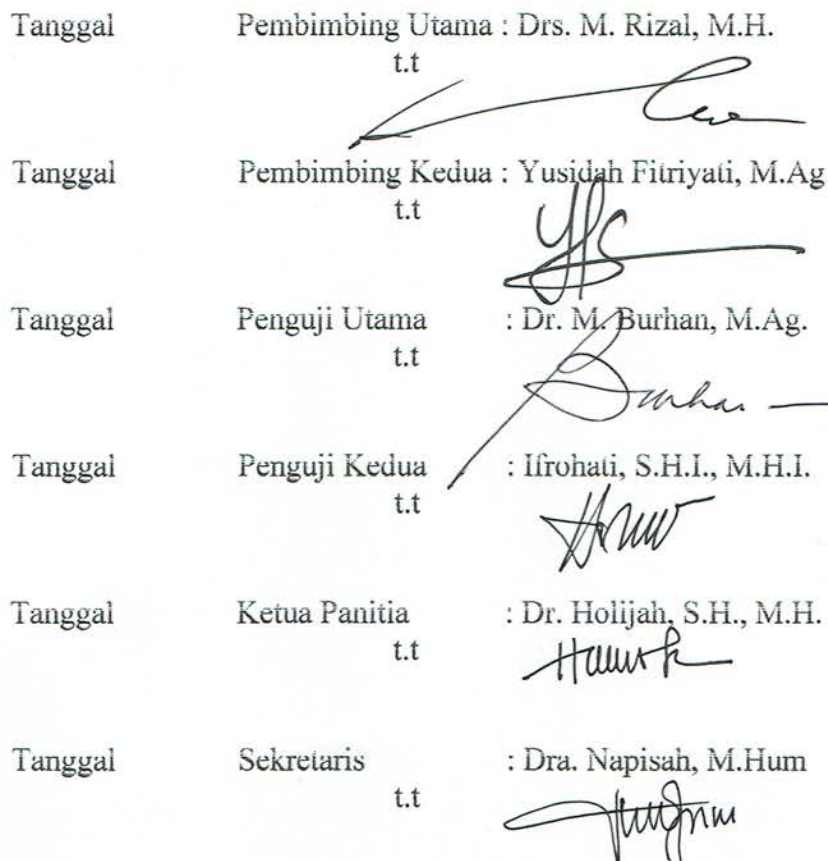 Tanggal Pembimbing Utama : Drs. M. Rizal, M.H.
t.t
Tanggal Pembimbing Kedua : Yusidah Fitriyati, M.Ag
t.t
Tanggal Penguji Utama : Dr. M. Burhan, M.Ag.
t.t
Burhan
Tanggal Penguji Kedua : Ifrohati, S.H.I., M.H.I.
t.t
Tanggal Ketua Panitia : Dr. Holijah, S.H., M.H.
t.t
Tanggal Sekretaris : Dra. Napisah, M.Hum
t.t